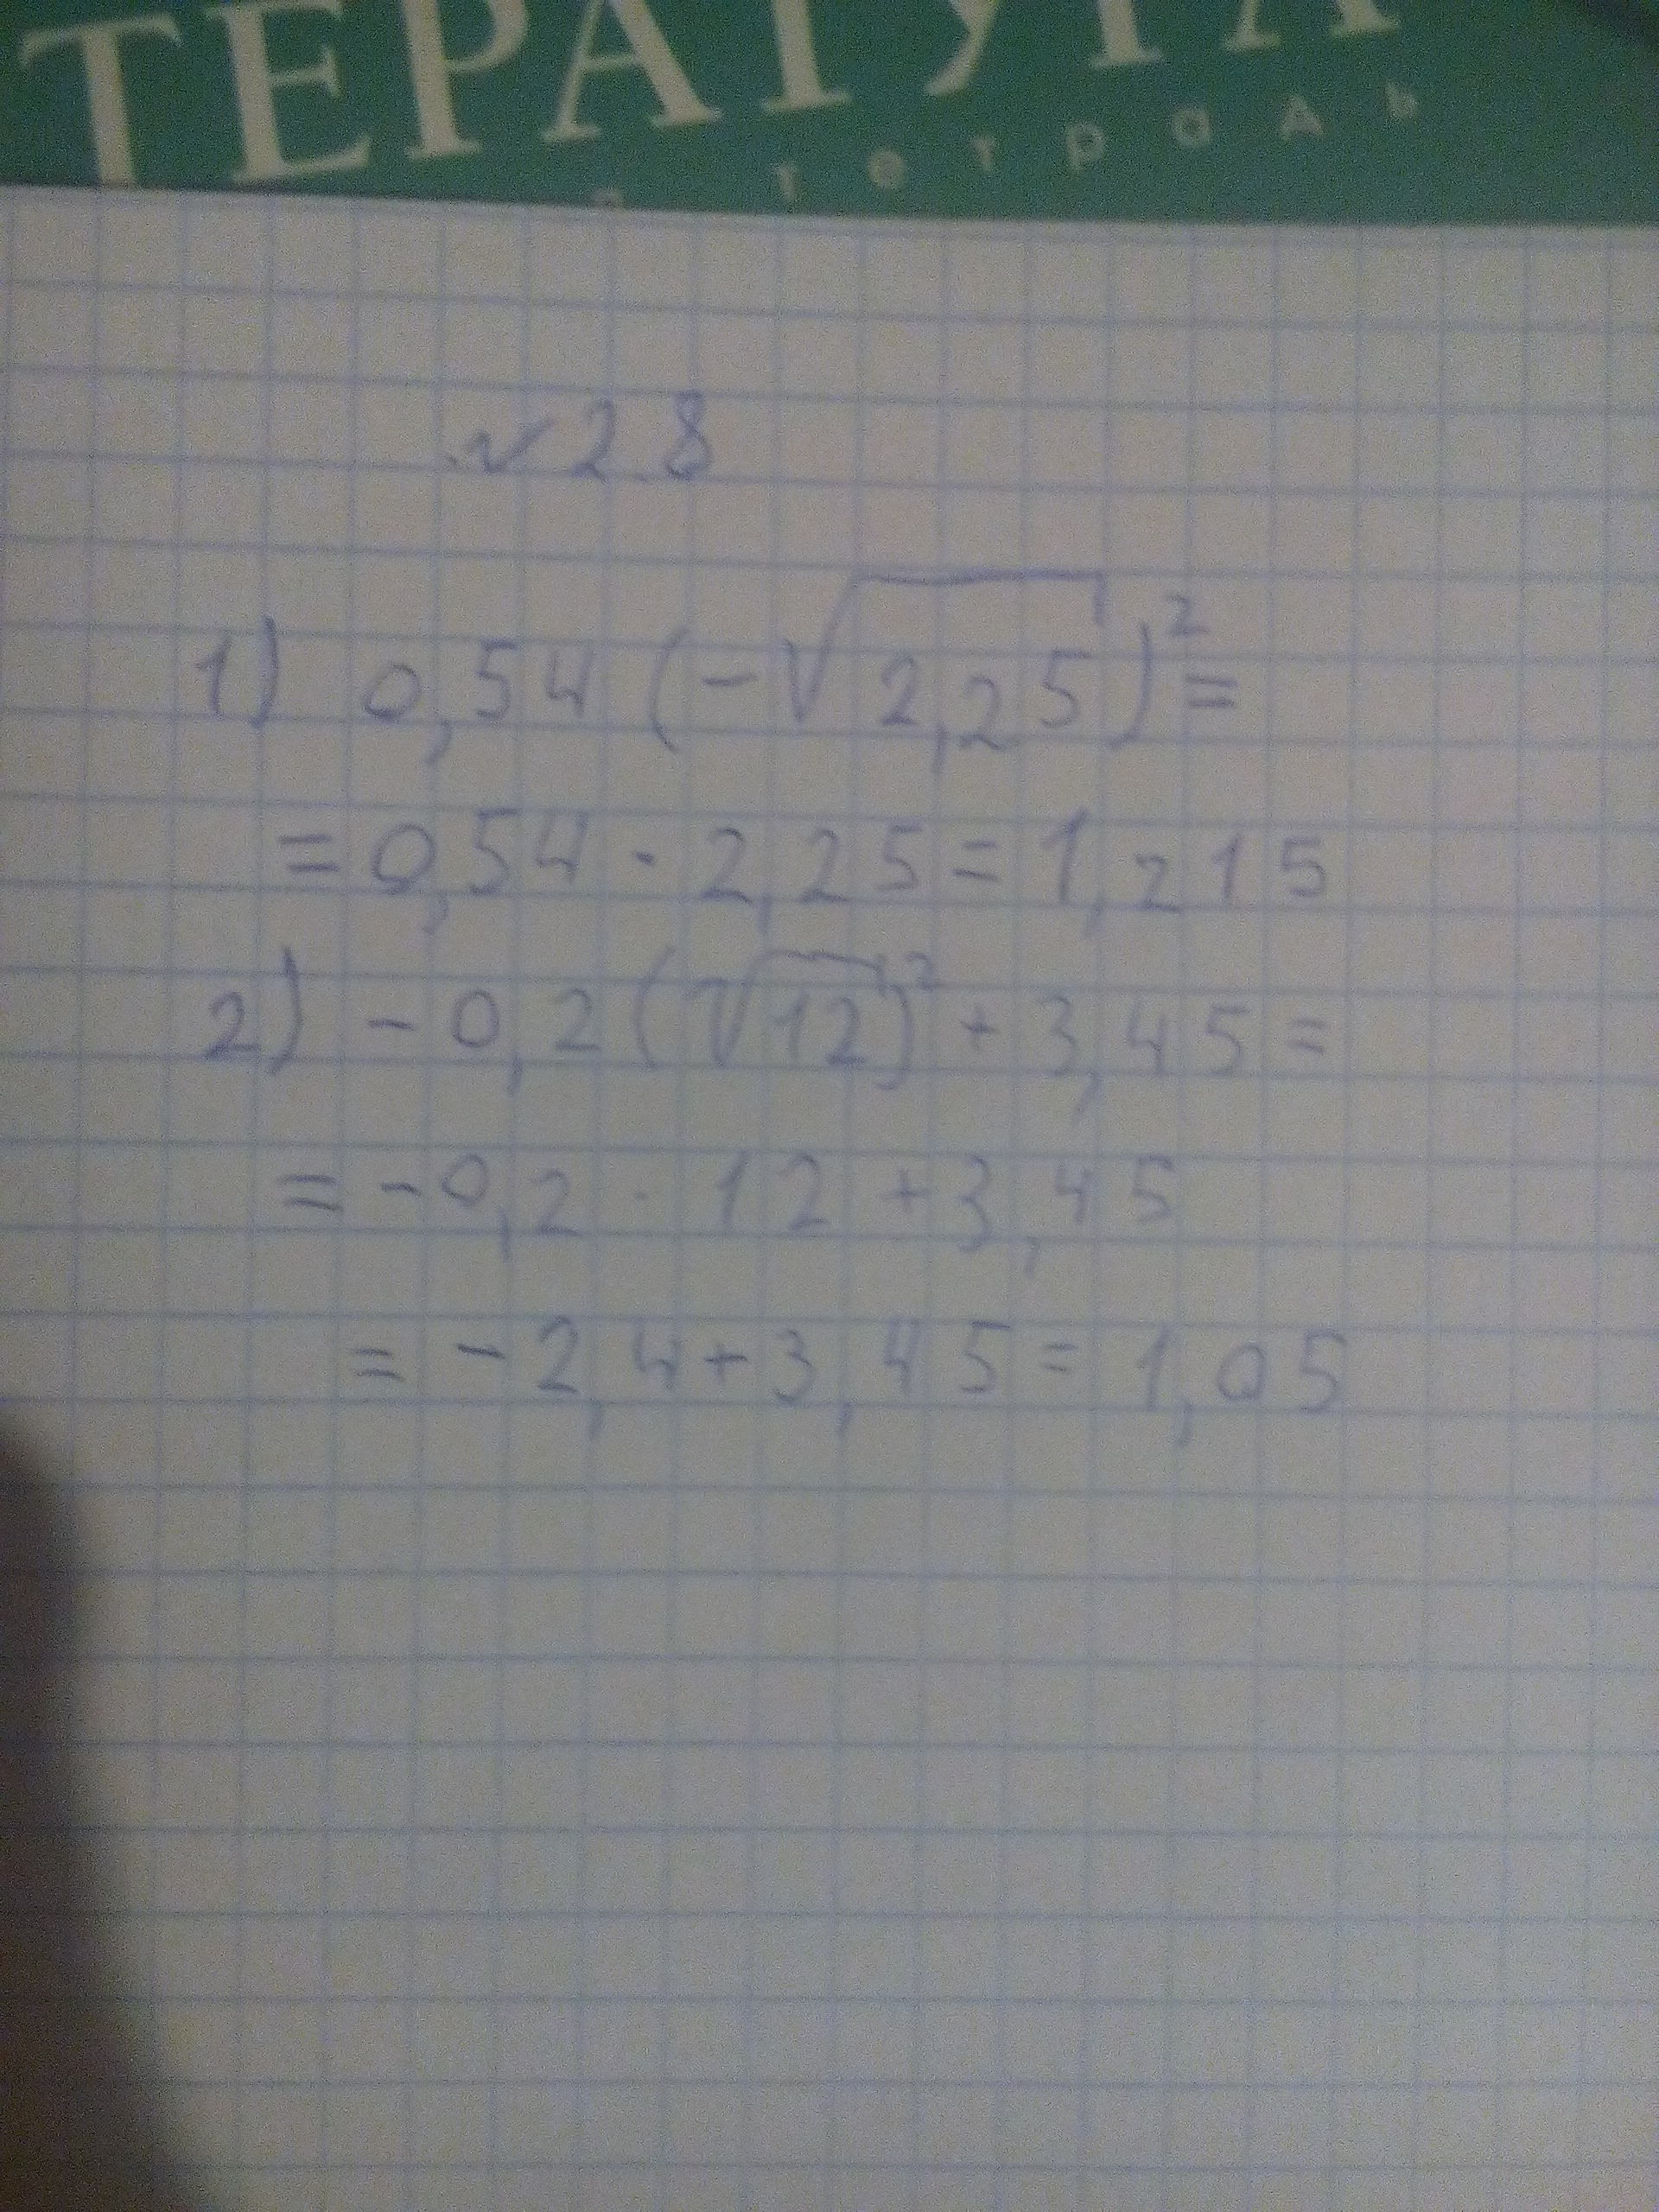 ТЕРАТУРА
тетрадь
№ 28
1) 0,54 (-√2,25)² =
= 0,54 · 2,25 = 1,215
2) - 0,2 (√12)² + 3,45 =
= - 0,2 · 12 + 3,45
= - 2,4 + 3,45 = 1,05